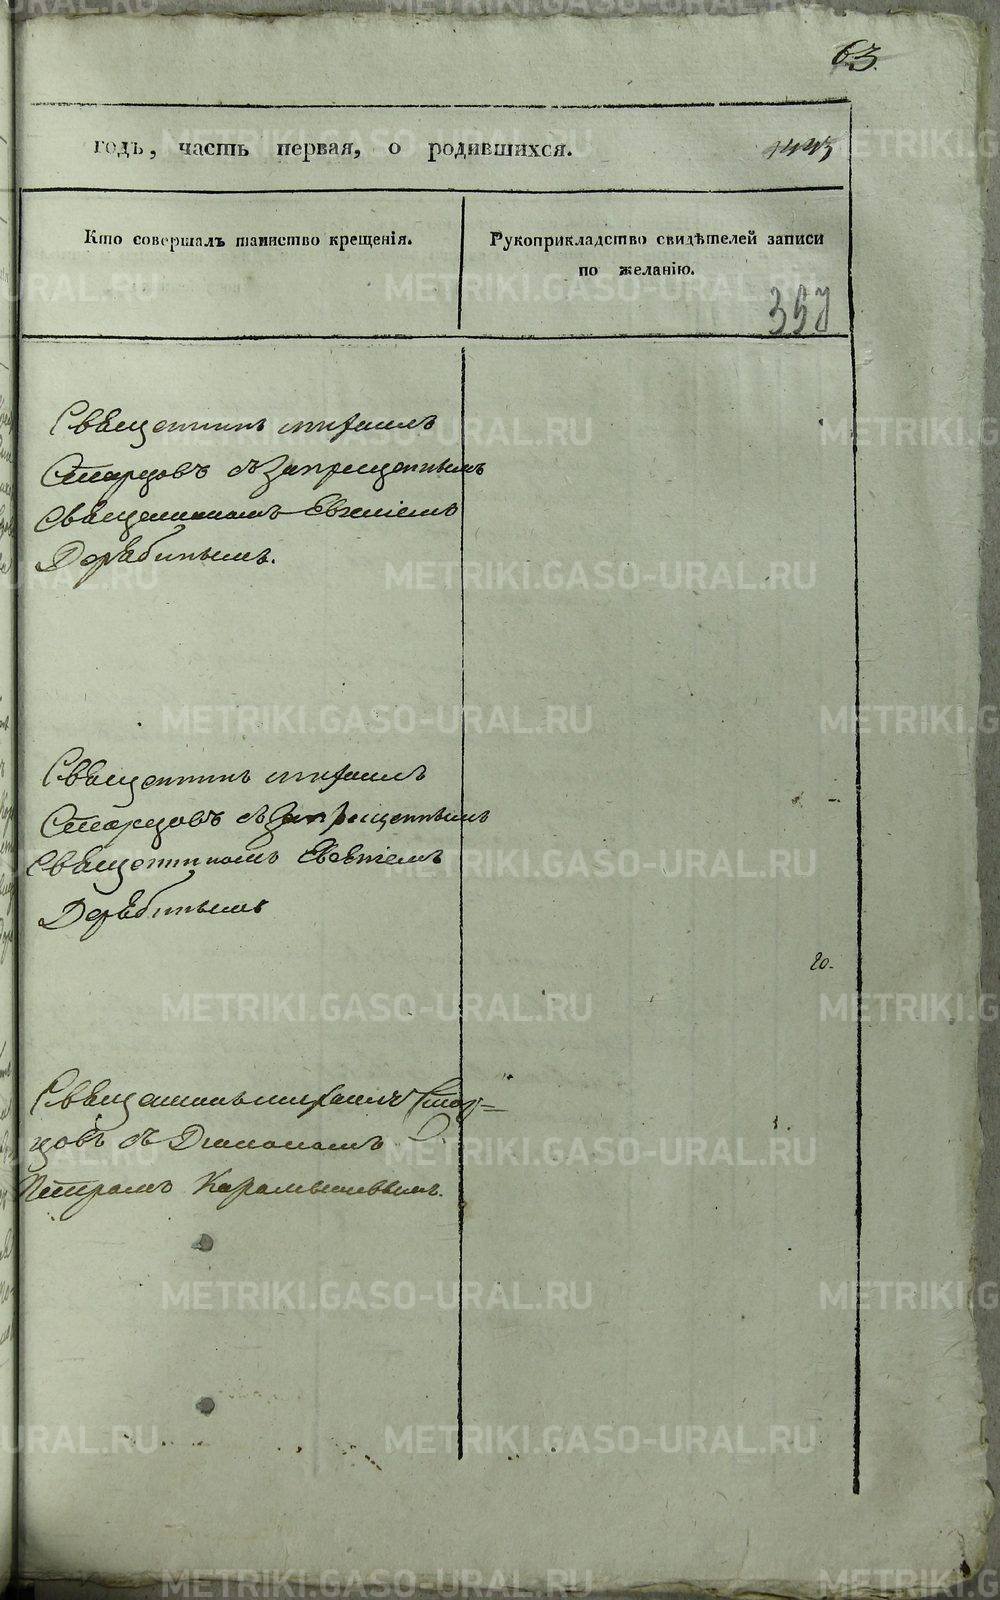 63.
годъ, часть первая, о родившихся.
Кто совершалъ таинство крещенія.
Рукоприкладство свидѣтелей записи
по желанію.
357
Священникъ Михаилъ
Старцовъ съ Запрещеннымъ
Священникомъ Евгеніемъ
Дерябинымъ.
Священникъ Михаилъ
Старцовъ съ Запрещеннымъ
Священникомъ Евгеніемъ
Дерябинымъ
20.
Священникъ Михаилъ Стар=
цовъ съ Діакономъ
Петромъ Карамышевымъ.
METRIKI.GASO-URAL.RU